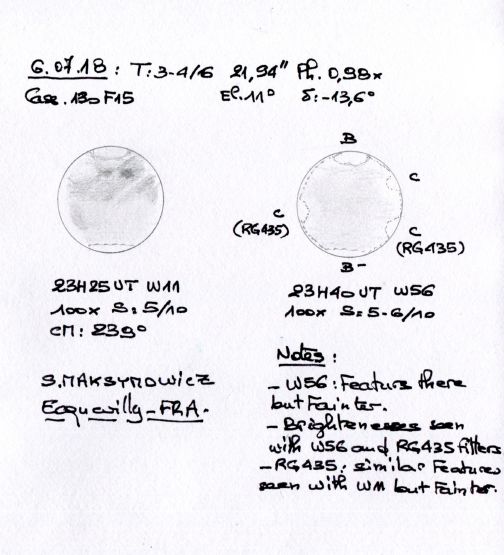 6.07.18 : T:3-4/6 21,94" Ph. 0,98x
Cass. 130 F15 El. 11° δ:-13,6°
B
C
C
(RG435)
C
(RG435)
B-
23H25 UT W11
100x S:5/10
CM: 239°
23H40 UT W56
100x S:5-6/10
S.MAKSYMOWICZ
Ecquevilly-FRA.
Notes :
- W56 : Features there
but Fainter.
- Brightenesses seen
with W56 and RG435 filters
- RG435: similar Features
seen with W11 but Fainter.